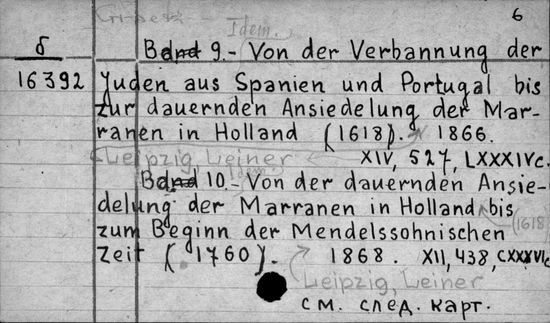 6
Idem.
δ Bdnd 9.- Von der Verbannung der
16392 Juden aus Spanien und Portugal bis
zur dauernden Ansiedelung der Mar-
ranen in Holland (1618). 1866.
Leipzig, Leiner XIV, 527, LXXXIV c.
Idem
Bdnd 10.- Von der dauernden Ansie-
delung der Marranen in Holland bis
(1618)
zum Beginn der Mendelssohnischen
Zeit (1760). 1868. XII, 438, CXXXVI c
Leipzig, Leiner
см. след. карт.